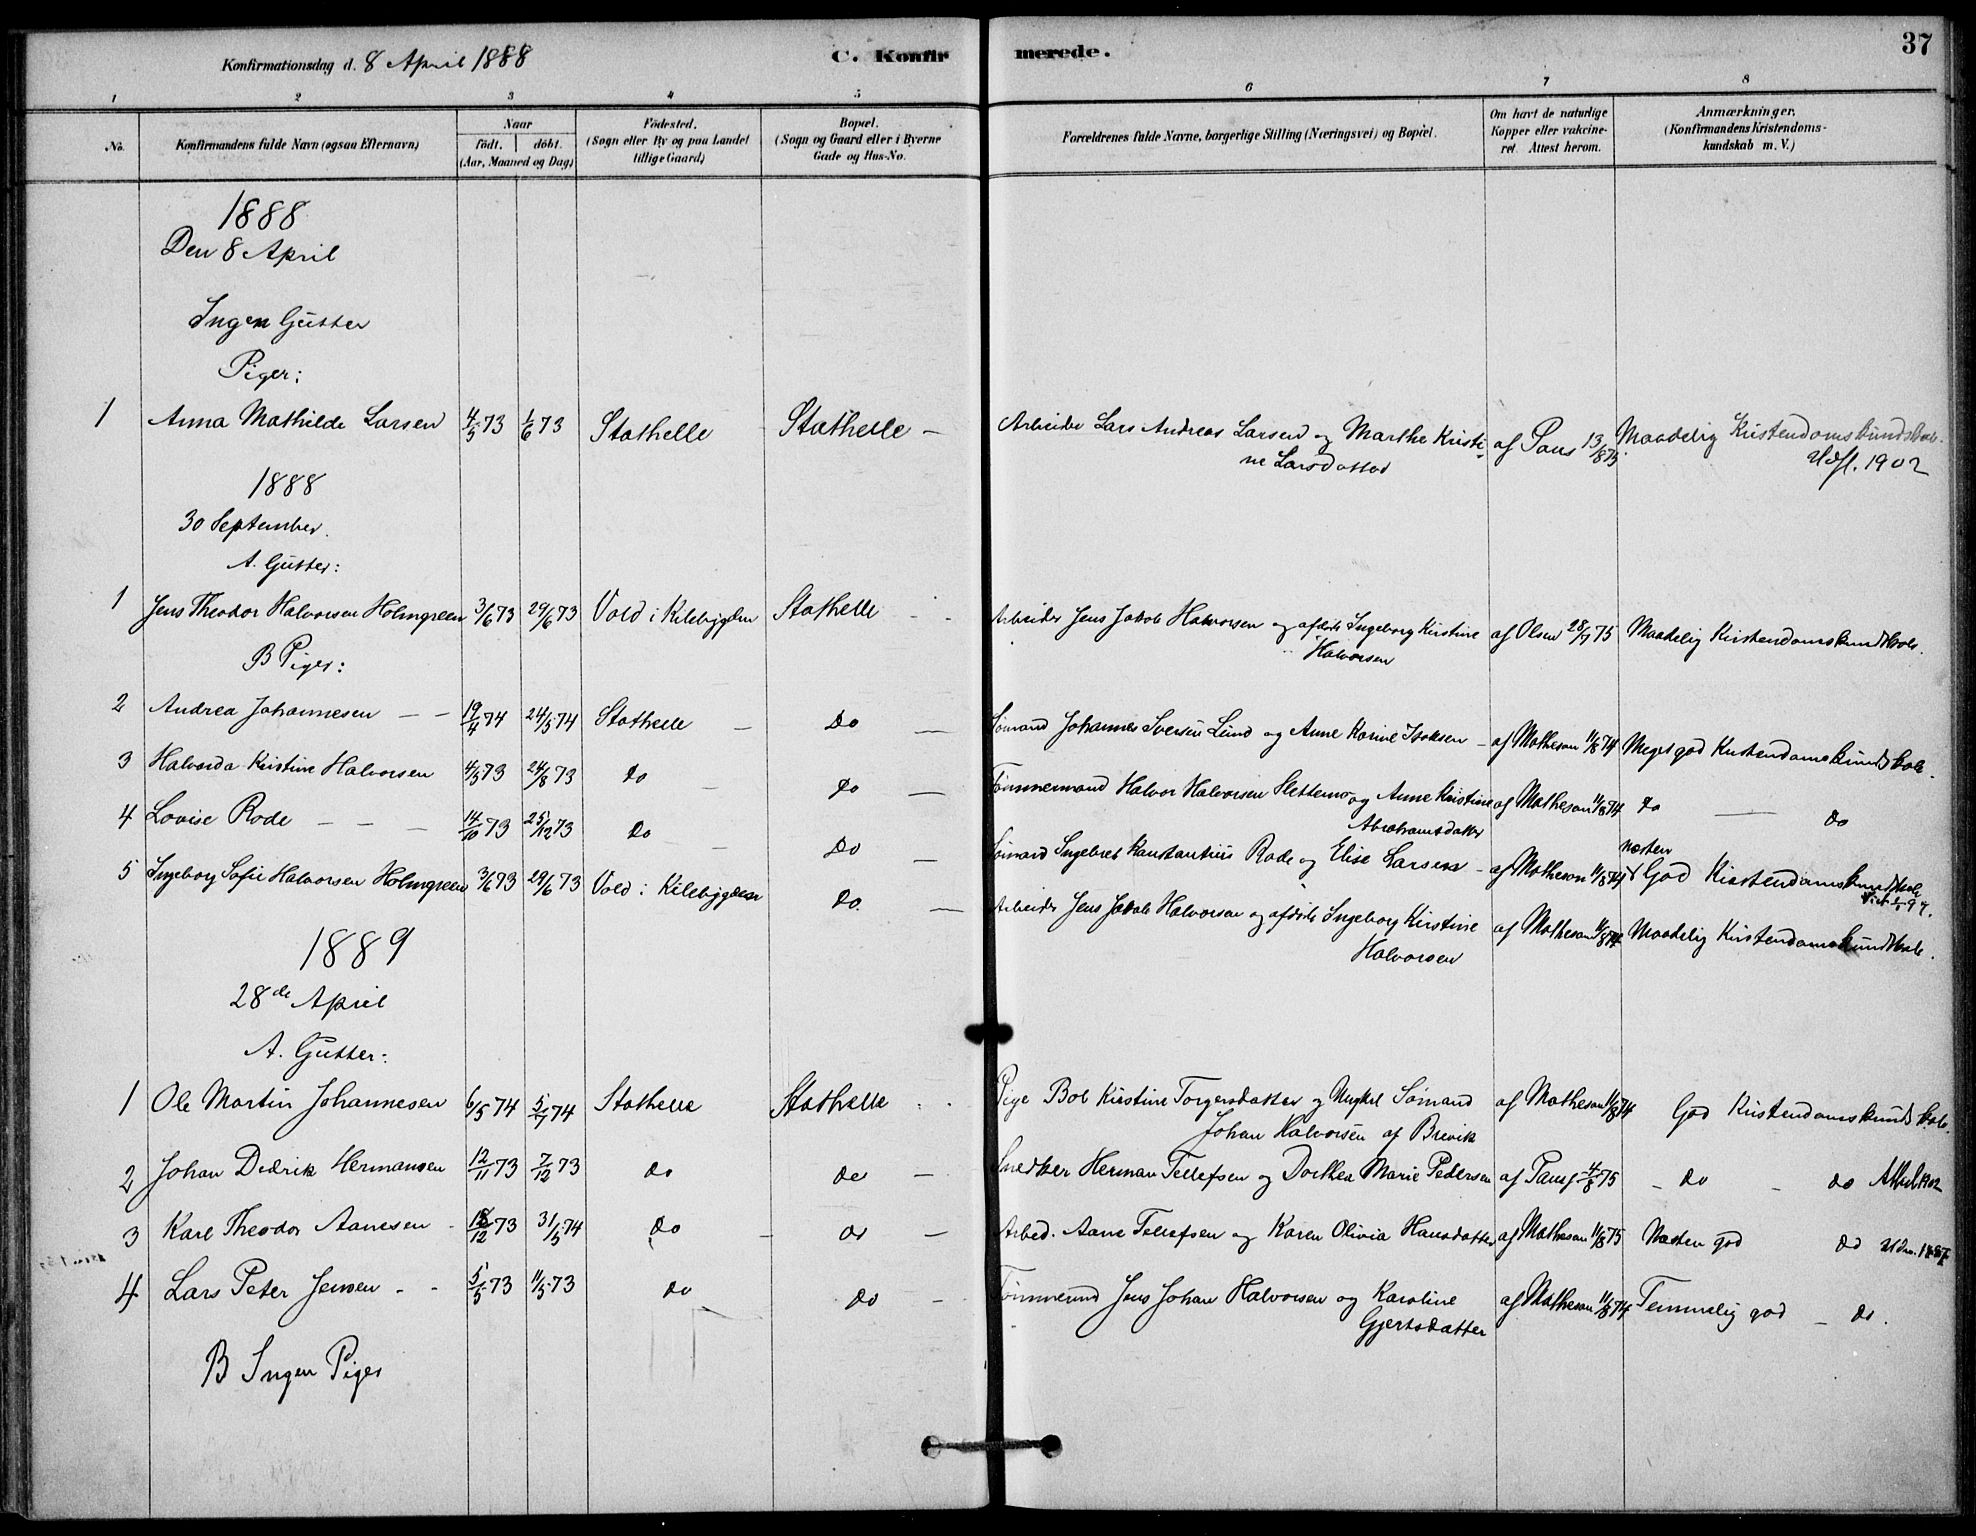 Konfirmationsdag d. 8 April 1888 C. Konfirmerede. 37
1 2 3 4 5 6 7 8
No. Konfirmandens fulde Navn (ogsaa Efternavn) Naar födt. döbt. (Aar, Maaned og Dag) Födested. (Sogn eller By og paa Landet tillige Gaard) Bopæl. (Sogn og Gaard eller i Byerne Gade og Hus-No. Forældrenes fulde Navne, borgerlige Stilling (Næringsvei) og Bopæl. Om havt de naturlige Kopper eller vakcineret. Attest herom. Anmærkninger. (Konfirmandens Kristendomskundskab m. V.)
1888
Den 8 April
Ingen Gutter
Piger:
1 Anna Mathilde Larsen 4/5 73 1/6 73 Stathelle Stathelle – Arbeider Lars Andreas Larsen og Marthe Kristi-
ne Larsdatter af Paus 13/8 75 Maadelig Kristendomskundskab.
Udfl. 1902
1888
30 September.
A. Gutter:
1 Jens Theodor Halvorsen Holmgreen 3/6 73 29/6 73 Vold i Kilebygden Stathelle Arbeider Jens Jakob Halvorsen og afdøde Ingeborg Kirstine
Halvorsen af Olsen 28/7 75 Maadelig Kristendomskundskab.
B Piger:
2 Andrea Johannesen – – 19/4 74 24/5 74 Stathelle – Do – Sømand Johannes Iversen Lund og Anne Karine Isaksen – af Matheson 11/8 74 Meget god Kristendomskundskab.
3 Halvorda Kristine Halvorsen 4/5 73 24/8 73 do – do – Tømmermand Halvor Halvorsen Slettemo og Anne Kristine
Abrahamsdatter af Matheson 11/8 74 do – do
4 Lovise Rode – – – 14/10 73 25/12 73 Do – Do – Sømand Ingebret Konstantius Rode og Elise Larsen – af Matheson 11/8 74 næsten
God Kristendomskundskab
5 Ingeborg Sofie Halvorsen Holmgreen 3/6 73 29/6 73 Vold i Kilebygden do. – Arbeider Jens Jakob Halvorsen og afdøde Ingeborg Kirstine
Halvorsen af Matheson 11/8 74 Maadelig Kristendomskundskab.
1889
28de April
A. Gutter:
1 Ole Martin Johannesen 6/5 74 5/7 74 Stathelle Stathelle Pige Bol Kirstine Torgersdatter og Ungkarl Sømand
Johan Halvorsen af Brevik af Matheson 11/8 74 God Kristendomskundskab.
2 Johan Didrik Hermansen 12/11 73 7/12 73 do do – Snedker Herman Tellefsen og Dorthea Marie Pedersen af Paus 4/8 75 – do – do 1902
3 Karl Theodor Aanesen – 18/12 73 31/5 74 do – do – Arbed. Aane Tellefsen og Karen Olivia Hansdatter af Matheson 11/8 75 Næsten god do
4 Lars Peter Jensen – – 5/5 73 11/5 73 do do – Tømmermd Jens Johan Halvorsen og Karoline
Gjertsdatter af Matheson 11/8 74 Temmelig god – do.
B Ingen Piger